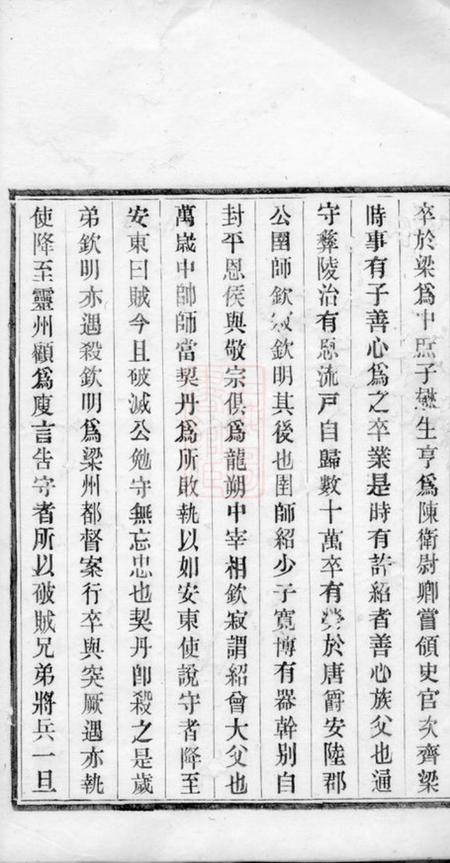 卒於梁爲中庶子懋生亨爲陳衛尉卿嘗領史官次齊梁
時事有子善心爲之卒業是時有許紹者善心族父也通
守彝陵治有恩流戸自歸數十萬卒有勞於唐爵安陸郡
公圉師欽寂欽明其後也圉師紹少子寬博有器幹別自
封平恩侯與敬宗俱爲龍朔中宰相欽寂謂紹曾大父也
萬歲中帥師當契丹爲所敗執以如安東使說守者降至
安東曰賊今且破滅公勉守無忘忠也契丹卽殺之是歲
弟欽明亦遇殺欽明爲梁州都督案行卒與突厥遇亦執
使降至靈州顧爲廋言告守者所以破賊兄弟將兵一旦